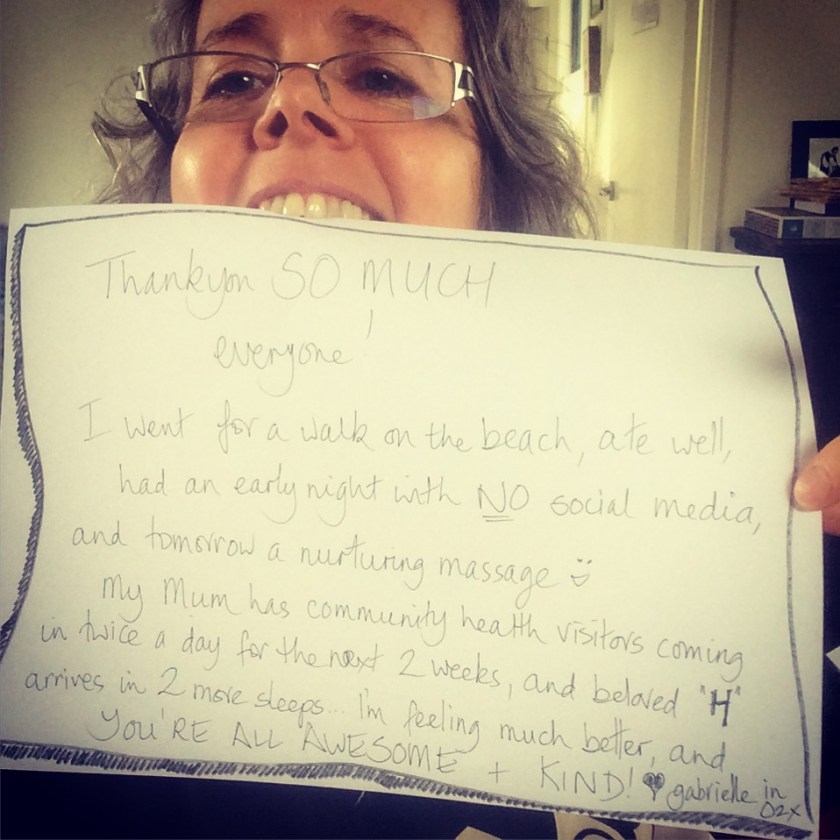 Thankyou SO MUCH
everyone!
I went for a walk on the beach, ate well,
had an early night with NO social media,
and tomorrow a nurturing massage
My Mum has community health visitors coming
in twice a day for the next 2 weeks, and beloved "H"
arrives in 2 more sleeps... I'm feeling much better, and
YOU'RE ALL AWESOME + KIND! ♥ gabrielle in
Oz x